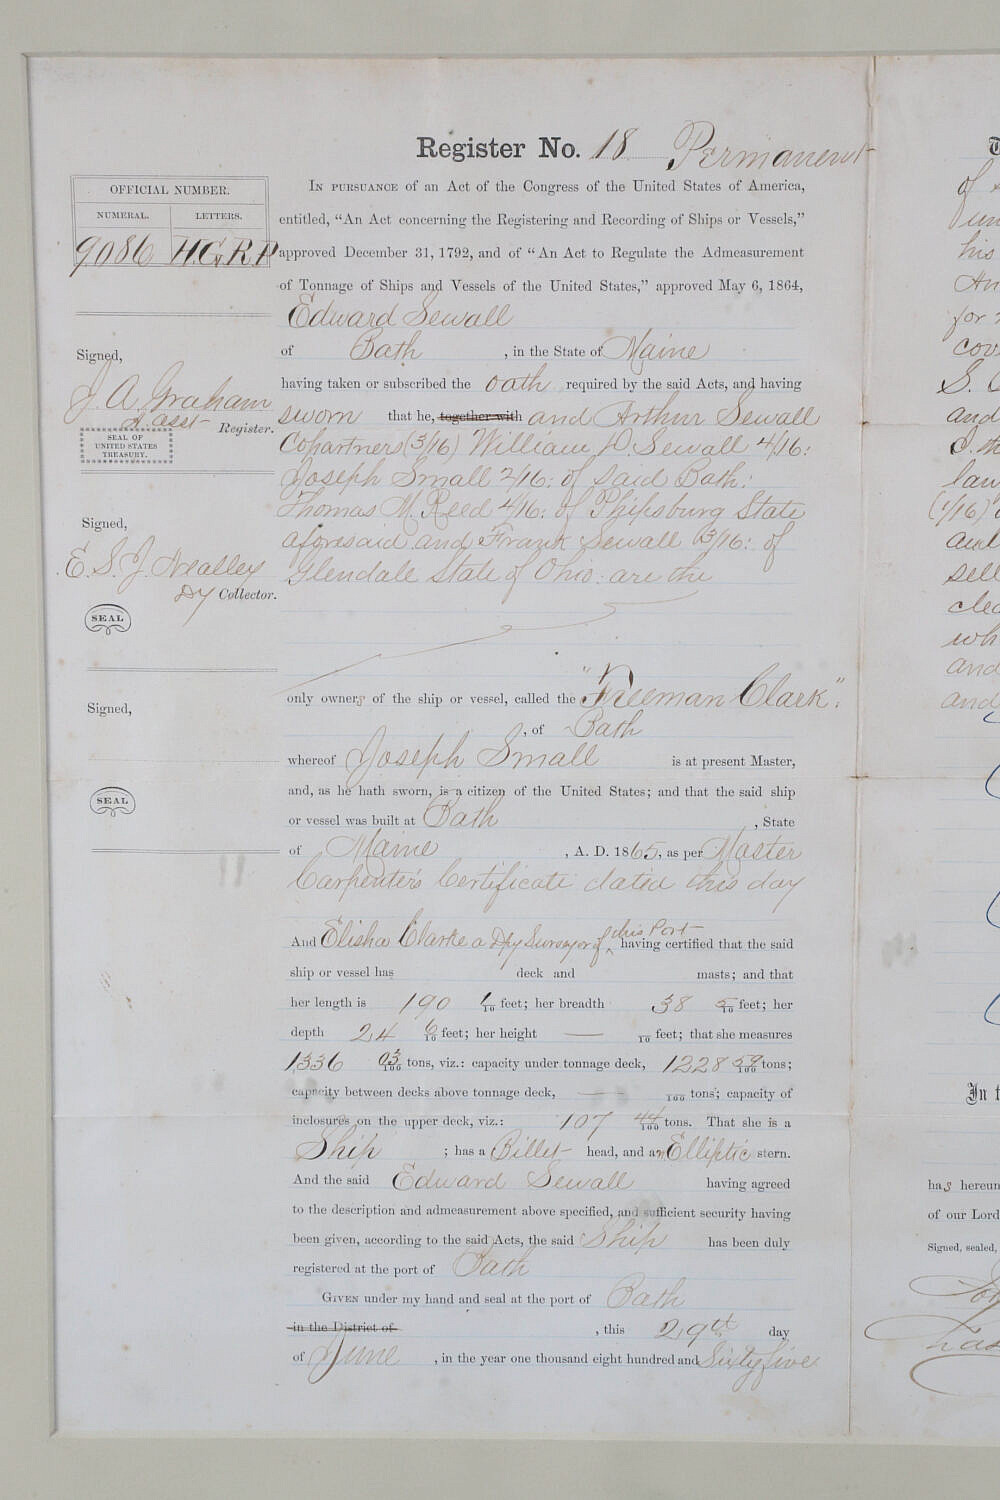 Register No. 18 Permanent
OFFICIAL NUMBER.
NUMERAL. LETTERS.
9086 H.G.R.P
In pursuance of an Act of the Congress of the United States of America,
entitled, "An Act concerning the Registering and Recording of Ships or Vessels,"
approved December 31, 1792, and of "An Act to Regulate the Admeasurement
of Tonnage of Ships and Vessels of the United States," approved May 6, 1864,
Edward Sewall
of Bath, in the State of Maine
having taken or subscribed the oath required by the said Acts, and having
sworn that he, together with and Arthur Sewall
Copartners (3/16) William D. Sewall 4/16:
Joseph Small 2/16: of said Bath:
Thomas M. Reed 4/16: of Phipsburg State
aforesaid and Frank Sewall (3/16: of
Glendale State of Ohio: are the
only owners of the ship or vessel, called the "Freeman Clark".
, of Bath
whereof Joseph Small is at present Master,
and, as he hath sworn, is a citizen of the United States; and that the said ship
or vessel was built at Bath, State
of Maine, A. D. 1865, as per Master
Carpenter's Certificate dated this day
And Elisha Clarke a Dpy Surveyor of this Port having certified that the said
ship or vessel has deck and masts; and that
her length is 190 1/10 feet; her breadth 38 5/10 feet; her
depth 24 6/10 feet; her height — /10 feet; that she measures
1336 03/100 tons, viz.: capacity under tonnage deck, 1228 59/100 tons;
capacity between decks above tonnage deck, — /100 tons; capacity of
inclosures on the upper deck, viz.: 107 44/100 tons. That she is a
Ship; has a Billet head, and an Elliptic stern.
And the said Edward Sewall having agreed
to the description and admeasurement above specified, and sufficient security having
been given, according to the said Acts, the said Ship has been duly
registered at the port of Bath
Given under my hand and seal at the port of Bath
in the District of, this 29th day
of June, in the year one thousand eight hundred and Sixty five
Signed,
J. A. Graham
Register.
SEAL OF
UNITED STATES
TREASURY.
Signed,
E. S. J. Nealley
Dy Collector.
SEAL
Signed,
SEAL
of
his
for
and
(1/16)
sell
who
and
and
In t
has hereun
of our Lord
Signed, sealed,